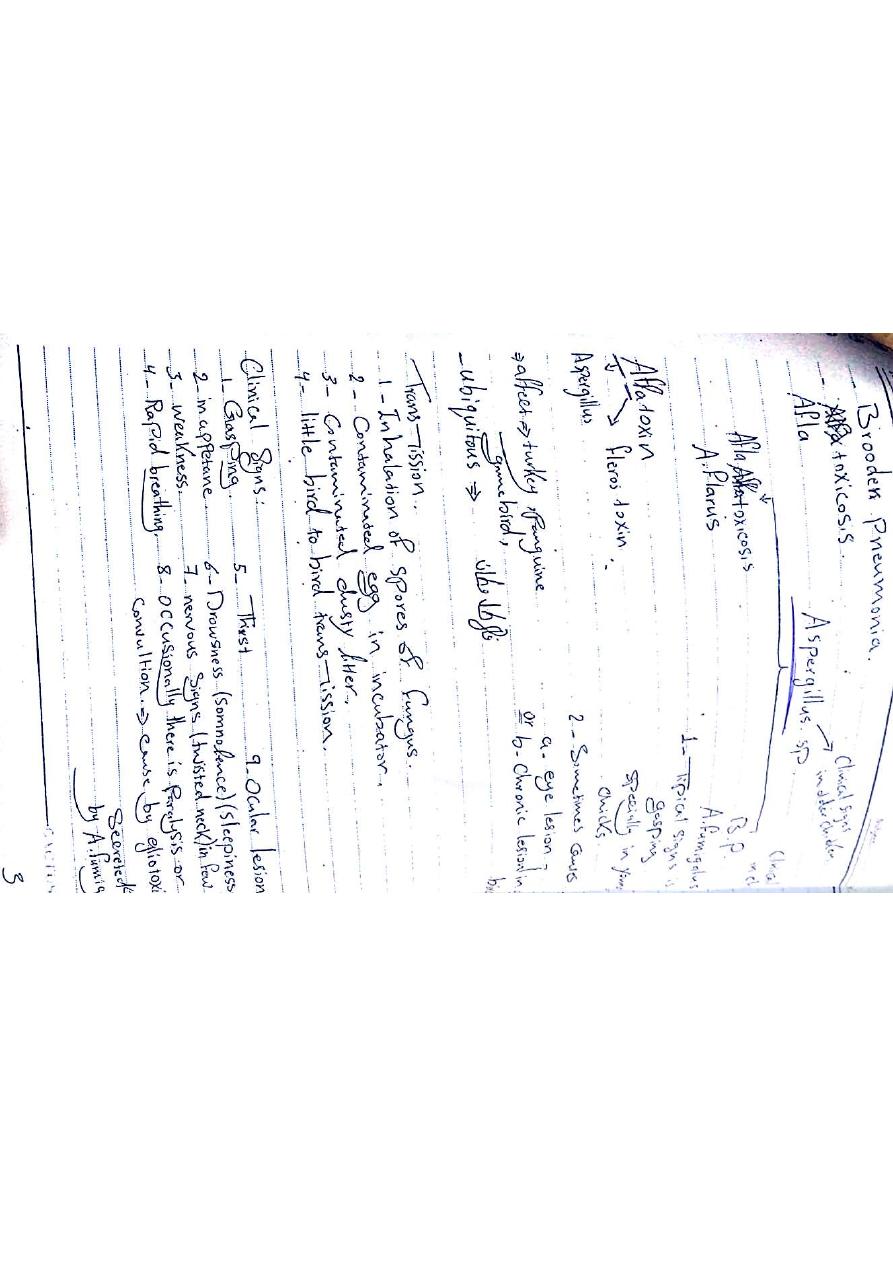 Brooder Pneumonia.
- toxicosis.
Afla
Aspergillus sp
Clinical signs
in older
Afla toxicosis
A. Flavus
B.P.
A. Fumigatus
1- Tipical signs is
gasping
specially in
chicks.
2- Sometimes caus
a- eye lesion
or b- Chronic lesion in
Aflatoxin
Aspergillus
flavus toxin.
⇒ affect ⇒ turkey, Panguine
game bird,
- ubiquitous ⇒
Trans-ission.
1- Inhalation of spores of fungus.
2- Contaminated egg in incubator.
3- Contaminated dusty litter.
4- little bird to bird trans-ission.
Clinical signs:
1- Gasping.
2- in appetane
3- weakness.
4- Rapid breathing.
5- Thirst
6- Drowsness (somnolence) (sleepiness
7- nervous signs (twisted neck) in few
8- occusionally there is Paralysis or
convultion. ⇒ cause by gliotoxi
Secreted
by A. Fumig
9- Ocular lesion
3